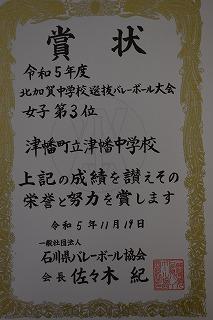 賞状
令和5年度
北加賀中学校選抜バレーボール大会
女子 第3位
津幡町立津幡中学校
上記の成績を讃えその
栄誉と努力を賞します
令和5年11月19日
一般社団法人
石川県バレーボール協会
会長 佐々木 紀